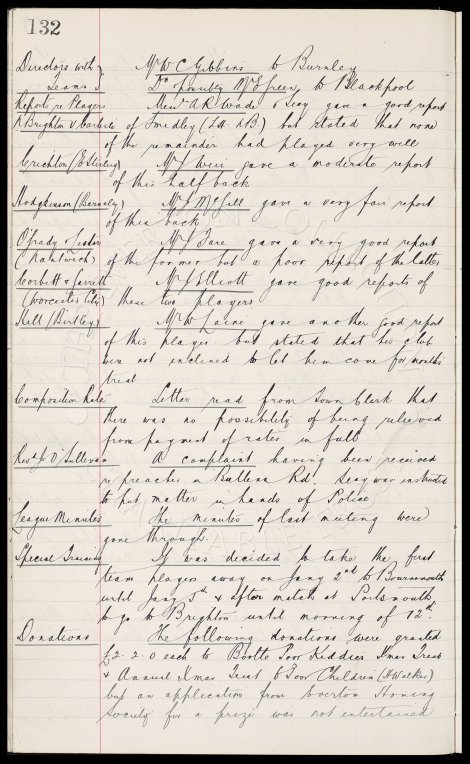 132
Directors with Mr W C Gibbins to Burnley
Teams Do possibly Mr Green, to Blackpool
Reports re Players Messrs A R Wade & Secy gave a good report
R Brighton v of Smedley (L.H. R.B) but stated that none
of the remainder had played very well
Crichton (E Stirling) Mr J Weir gave a moderate report
of this half back
Hodgkinson (Barnsley) Mr J McGill gave a very fair report
of this back
O'Grady & Lister Mr J Fare gave a very good report
(Nantwich) of the former but a poor report of the latter
Corbett & Jarrett Mr J Elliott gave good reports of
(Worcester City) these two players
Hell (Birtley) Mr W Laine gave another good report
of this player but stated that his club
were not inclined to let him come for months
trial
Composition Rate Letter read from Town Clerk that
there was no possibility of being relieved
from payment of rates in full
Revd J O'Sullivan A complaint having been received
re preacher in Bullens Rd. Secy was instructed
to put matter in hands of Police
League Minutes The minutes of last meeting were
gone through.
Special Training It was decided to take the first
team players away on Jany 2nd to Bournemouth
until Jany 5th & after match at Portsmouth
to go to Brighton until morning of 12th.
Donations The following donations were granted
£2-2-0 each to Bootle Poor Kiddies Xmas Treat
& Annual Xmas Treat to Poor Children (H Walker)
but an application from Everton Homing
Society for a prize was not entertained